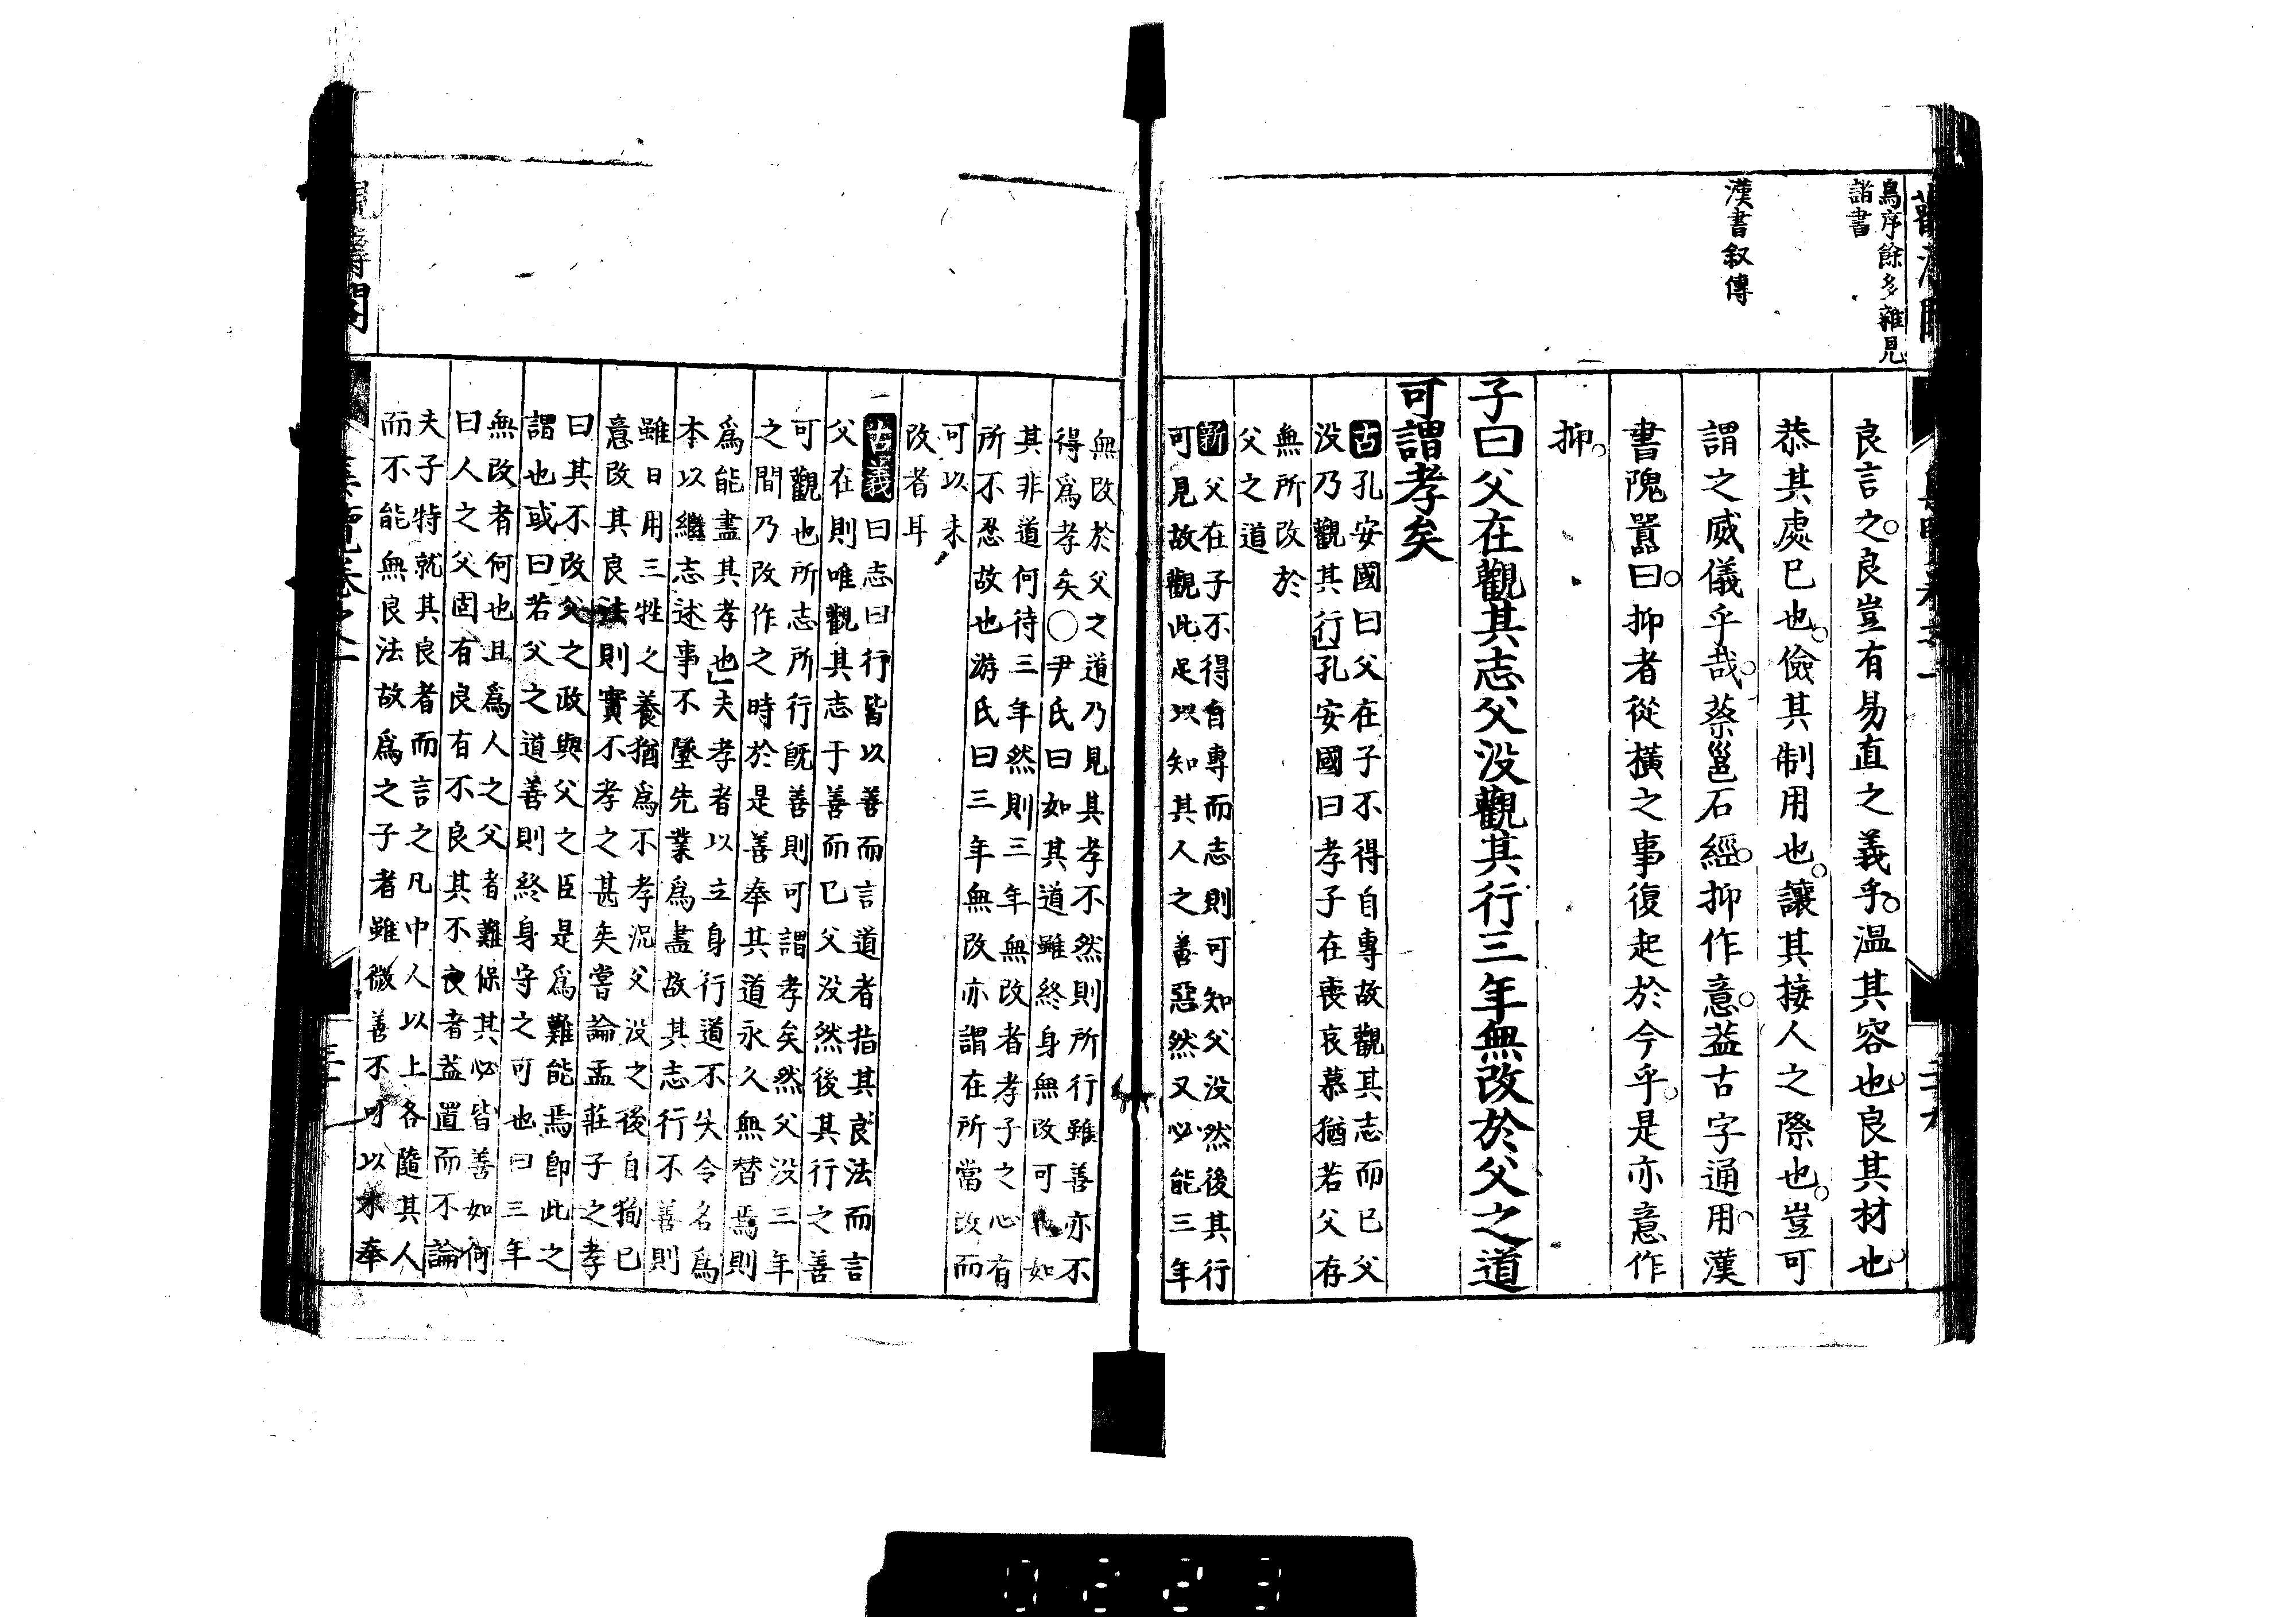 鳥序餘多雜見
諸書
漢書叙傳
良言之良豈有易直之義乎温其容也良其材也
恭其處已也儉其制用也讓其接人之際也豈可
謂之威儀乎哉蔡邕石經抑作意蓋古字通用漢
書隗囂曰抑者從橫之事復起於今乎是亦意作
抑
子曰父在觀其志父没觀其行三年無改於父之道
可謂孝矣
古孔安國曰父在子不得自專故觀其志而已父
没乃觀其行孔安國曰孝子在喪哀慕猶若父存
無所改於
父之道
新父在子不得自專而志則可知父没然後其行
可見故觀此足以知其人之善惡然又必能三年
無改於父之道乃見其孝不然則所行雖善亦不
得爲孝矣○尹氏曰如其道雖終身無改可也如
其非道何待三年然則三年無改者孝子之心有
所不忍故也游氏曰三年無改亦謂在所當改而
可以未
改者耳
古義曰志曰行皆以善而言道者指其良法而言
父在則唯觀其志于善而已父没然後其行之善
可觀也所志所行既善則可謂孝矣然父没三年
之間乃改作之時於是善奉其道永久無替焉則
爲能盡其孝也夫孝者以立身行道不失令名爲
本以繼志述事不墜先業爲盡故其志行不善則
雖日用三牲之養猶爲不孝況父没之後自狥已
意改其良法則實不孝之甚矣嘗論孟莊子之孝
曰其不改父之政與父之臣是爲難能焉即此之
謂也或曰若父之道善則終身守之可也曰三年
無改者何也且爲人之父者難保其必皆善如何
曰人之父固有良有不良其不良者蓋置而不論
夫子特就其良者而言之凡中人以上各隨其人
而不能無良法故爲之子者雖微善不可以不奉